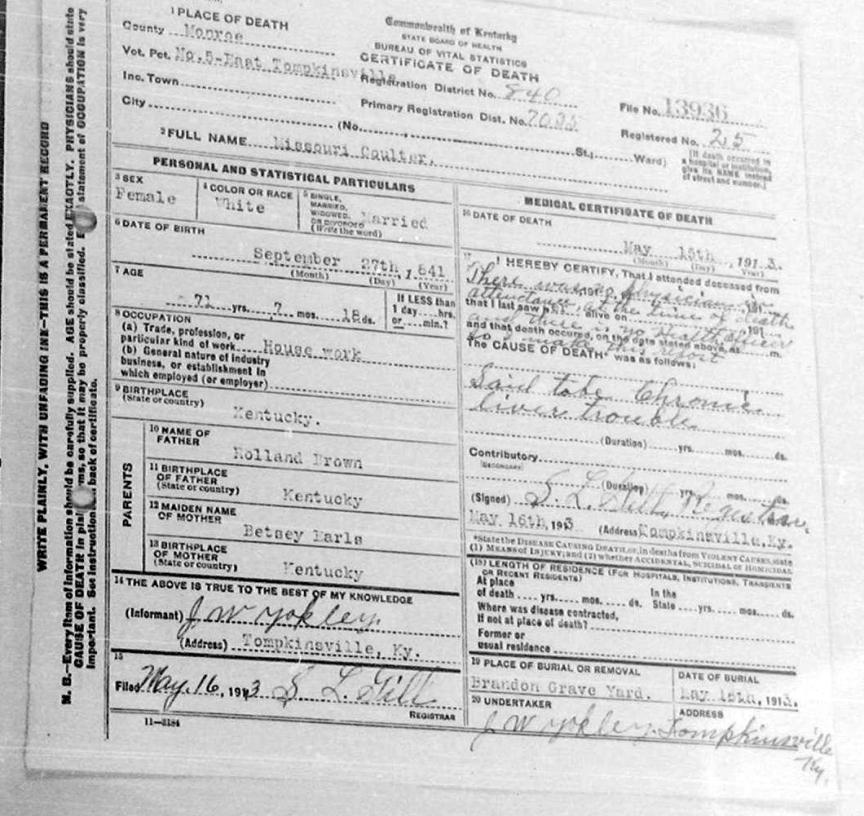 WRITE PLAINLY, WITH UNFADING INK—THIS IS A PERMANENT RECORD
N. B.—Every item of information should be carefully supplied. AGE should be stated EXACTLY. PHYSICIANS should state
CAUSE OF DEATH in plain terms, so that it may be properly classified. statement of OCCUPATION is very
important. See instruction back of certificate.
1 PLACE OF DEATH
County Monroe
Vot. Pct. No.5-East Tompkinsville
Inc. Town
City
Commonwealth of Kentucky
STATE BOARD OF HEALTH
BUREAU OF VITAL STATISTICS
CERTIFICATE OF DEATH
Registration District No. 840
Primary Registration Dist. No. 7035
File No. 13936
Registered No. 25
(No. St.; Ward)
(If death occurred in
a hospital or institution,
give its NAME instead
of street and number.)
2 FULL NAME Missouri Coulter.
PERSONAL AND STATISTICAL PARTICULARS
3 SEX
Female
4 COLOR OR RACE
White
5 SINGLE,
MARRIED,
WIDOWED,
OR DIVORCED
(Write the word)
Married
6 DATE OF BIRTH
September 27th, 1841
(Month) (Day) (Year)
7 AGE
71 yrs. 7 mos. 18 ds.
If LESS than
1 day....hrs.
or....min.?
8 OCCUPATION
(a) Trade, profession, or
particular kind of work House work
(b) General nature of industry
business, or establishment in
which employed (or employer)
9 BIRTHPLACE
(State or country)
Kentucky.
PARENTS
10 NAME OF
FATHER
Rolland Brown
11 BIRTHPLACE
OF FATHER
(State or country)
Kentucky
12 MAIDEN NAME
OF MOTHER
Betsey Earls
13 BIRTHPLACE
OF MOTHER
(State or country)
Kentucky
14 THE ABOVE IS TRUE TO THE BEST OF MY KNOWLEDGE
(Informant) J W Yokley.
(Address) Tompkinsville, Ky.
15
Filed May. 16, 1913 S L. Gill
REGISTRAR
11—3184
MEDICAL CERTIFICATE OF DEATH
16 DATE OF DEATH
May 15th, 1913.
(Month) (Day) (Year)
17 I HEREBY CERTIFY, That I attended deceased from
There was no physician in
attendance at the time of death
that I last saw h alive on 191
and there is no Health officer
and that death occurred, on the date stated above, at m.
So I make this report
The CAUSE OF DEATH* was as follows:
Said to be Chronic
liver trouble
(Duration) yrs. mos. ds.
Contributory
(SECONDARY)
(Duration) yrs. mos. ds.
(Signed) S L. Gill, Registrar.
May 16th, 1913 (Address) Tompkinsville, Ky.
*State the DISEASE CAUSING DEATH, or, in deaths from VIOLENT CAUSES, state
(1) MEANS OF INJURY; and (2) whether ACCIDENTAL, SUICIDAL or HOMICIDAL.
(18) LENGTH OF RESIDENCE (FOR HOSPITALS, INSTITUTIONS, TRANSIENTS
OR RECENT RESIDENTS)
At place In the
of death yrs. mos. ds. State yrs. mos. ds.
Where was disease contracted,
if not at place of death?
Former or
usual residence
19 PLACE OF BURIAL OR REMOVAL
Brandon Grave Yard.
DATE OF BURIAL
May 15th, 1913.
20 UNDERTAKER
J W Yokley.
ADDRESS
Tompkinsville
Ky.